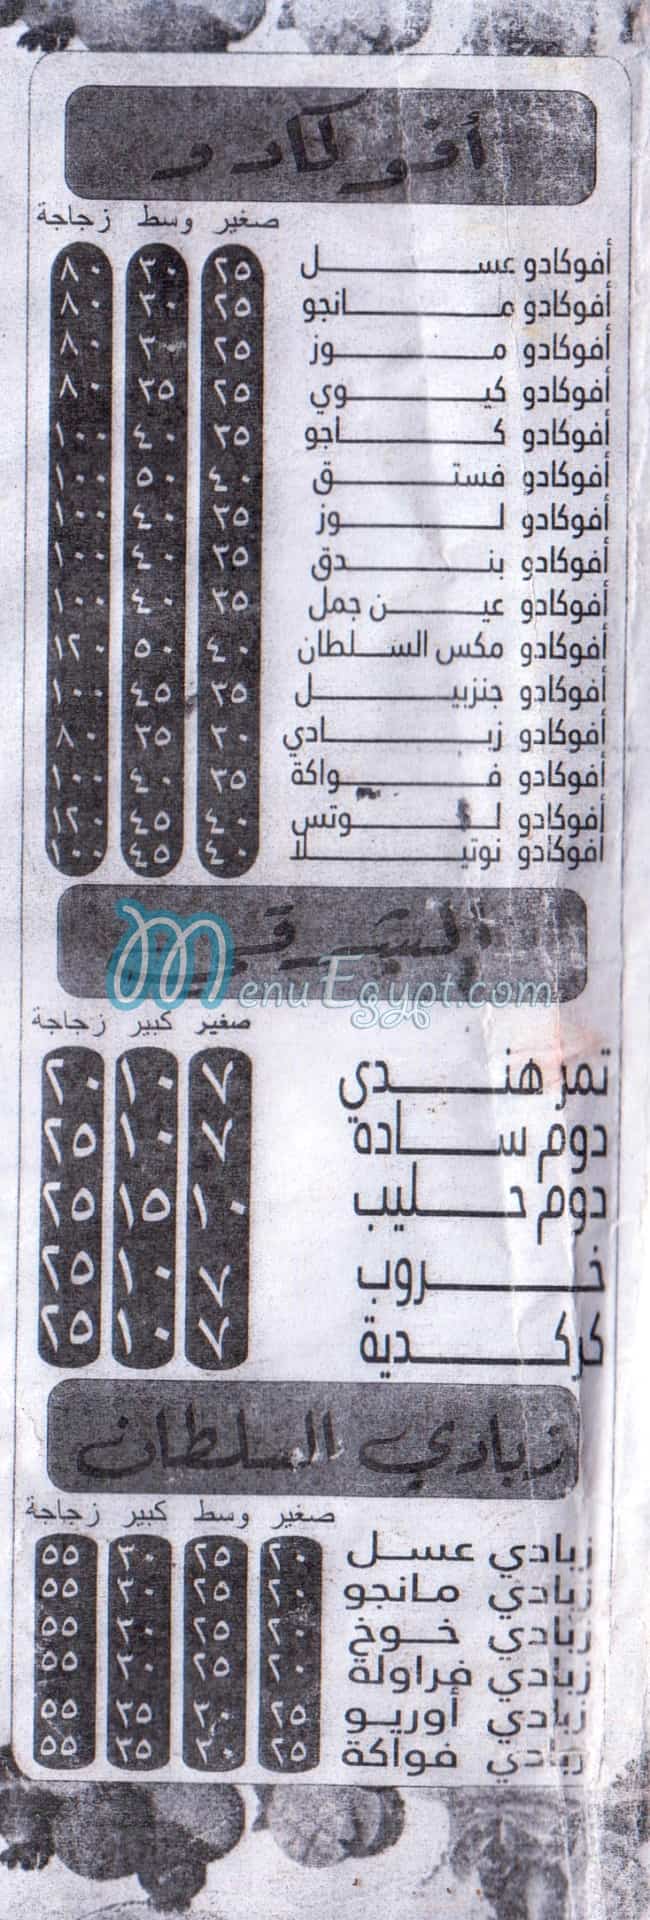 أفوكادو
صغير وسط زجاجة
أفوكادو عسل ٢٥ ٣٠ ٨٠
أفوكادو مانجو ٢٥ ٣٠ ٨٠
أفوكادو موز ٢٥ ٣٠ ٨٠
أفوكادو كيوي ٢٥ ٣٥ ٨٠
أفوكادو كاجو ٣٥ ٤٠ ١٠٠
أفوكادو فستق ٤٠ ٥٠ ١٠٠
أفوكادو لوز ٣٥ ٤٠ ١٠٠
أفوكادو بندق ٣٥ ٤٠ ١٠٠
أفوكادو عين جمل ٣٥ ٤٠ ١٠٠
أفوكادو مكس السلطان ٤٠ ٥٠ ١٢٠
أفوكادو جنزبيل ٣٥ ٤٥ ١٠٠
أفوكادو زبادي ٣٠ ٣٥ ٨٠
أفوكادو فواكة ٣٥ ٤٠ ١٠٠
أفوكادو لوتس ٤٠ ٤٥ ١٢٠
أفوكادو نوتيلا ٤٠ ٤٥ ١٠٠
الشرقي
MenuEgypt.com
صغير كبير زجاجة
تمر هندي ٧ ١٠ ٢٠
دوم سادة ٧ ١٠ ٢٥
دوم حليب ١٠ ١٥ ٢٥
خروب ٧ ١٠ ٢٥
كركدية ٧ ١٠ ٢٥
زبادي السلطان
صغير وسط كبير زجاجة
زبادي عسل ٢٠ ٢٥ ٣٠ ٥٥
زبادي مانجو ٢٠ ٢٥ ٣٠ ٥٥
زبادي خوخ ٢٠ ٢٥ ٣٠ ٥٥
زبادي فراولة ٢٠ ٢٥ ٣٠ ٥٥
زبادي أوريو ٢٥ ٣٠ ٣٥ ٥٥
زبادي فواكة ٢٥ ٣٠ ٣٥ ٥٥